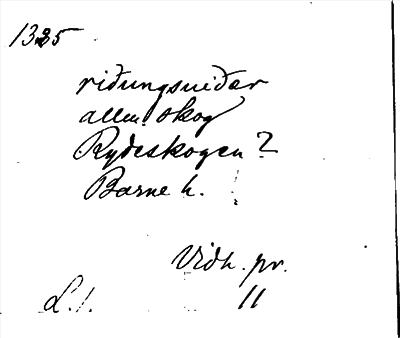 1325
riðungsueðær
allm. skog
Rydeskogen?
Barne h.
Vidh. pr.
L. 1. 11